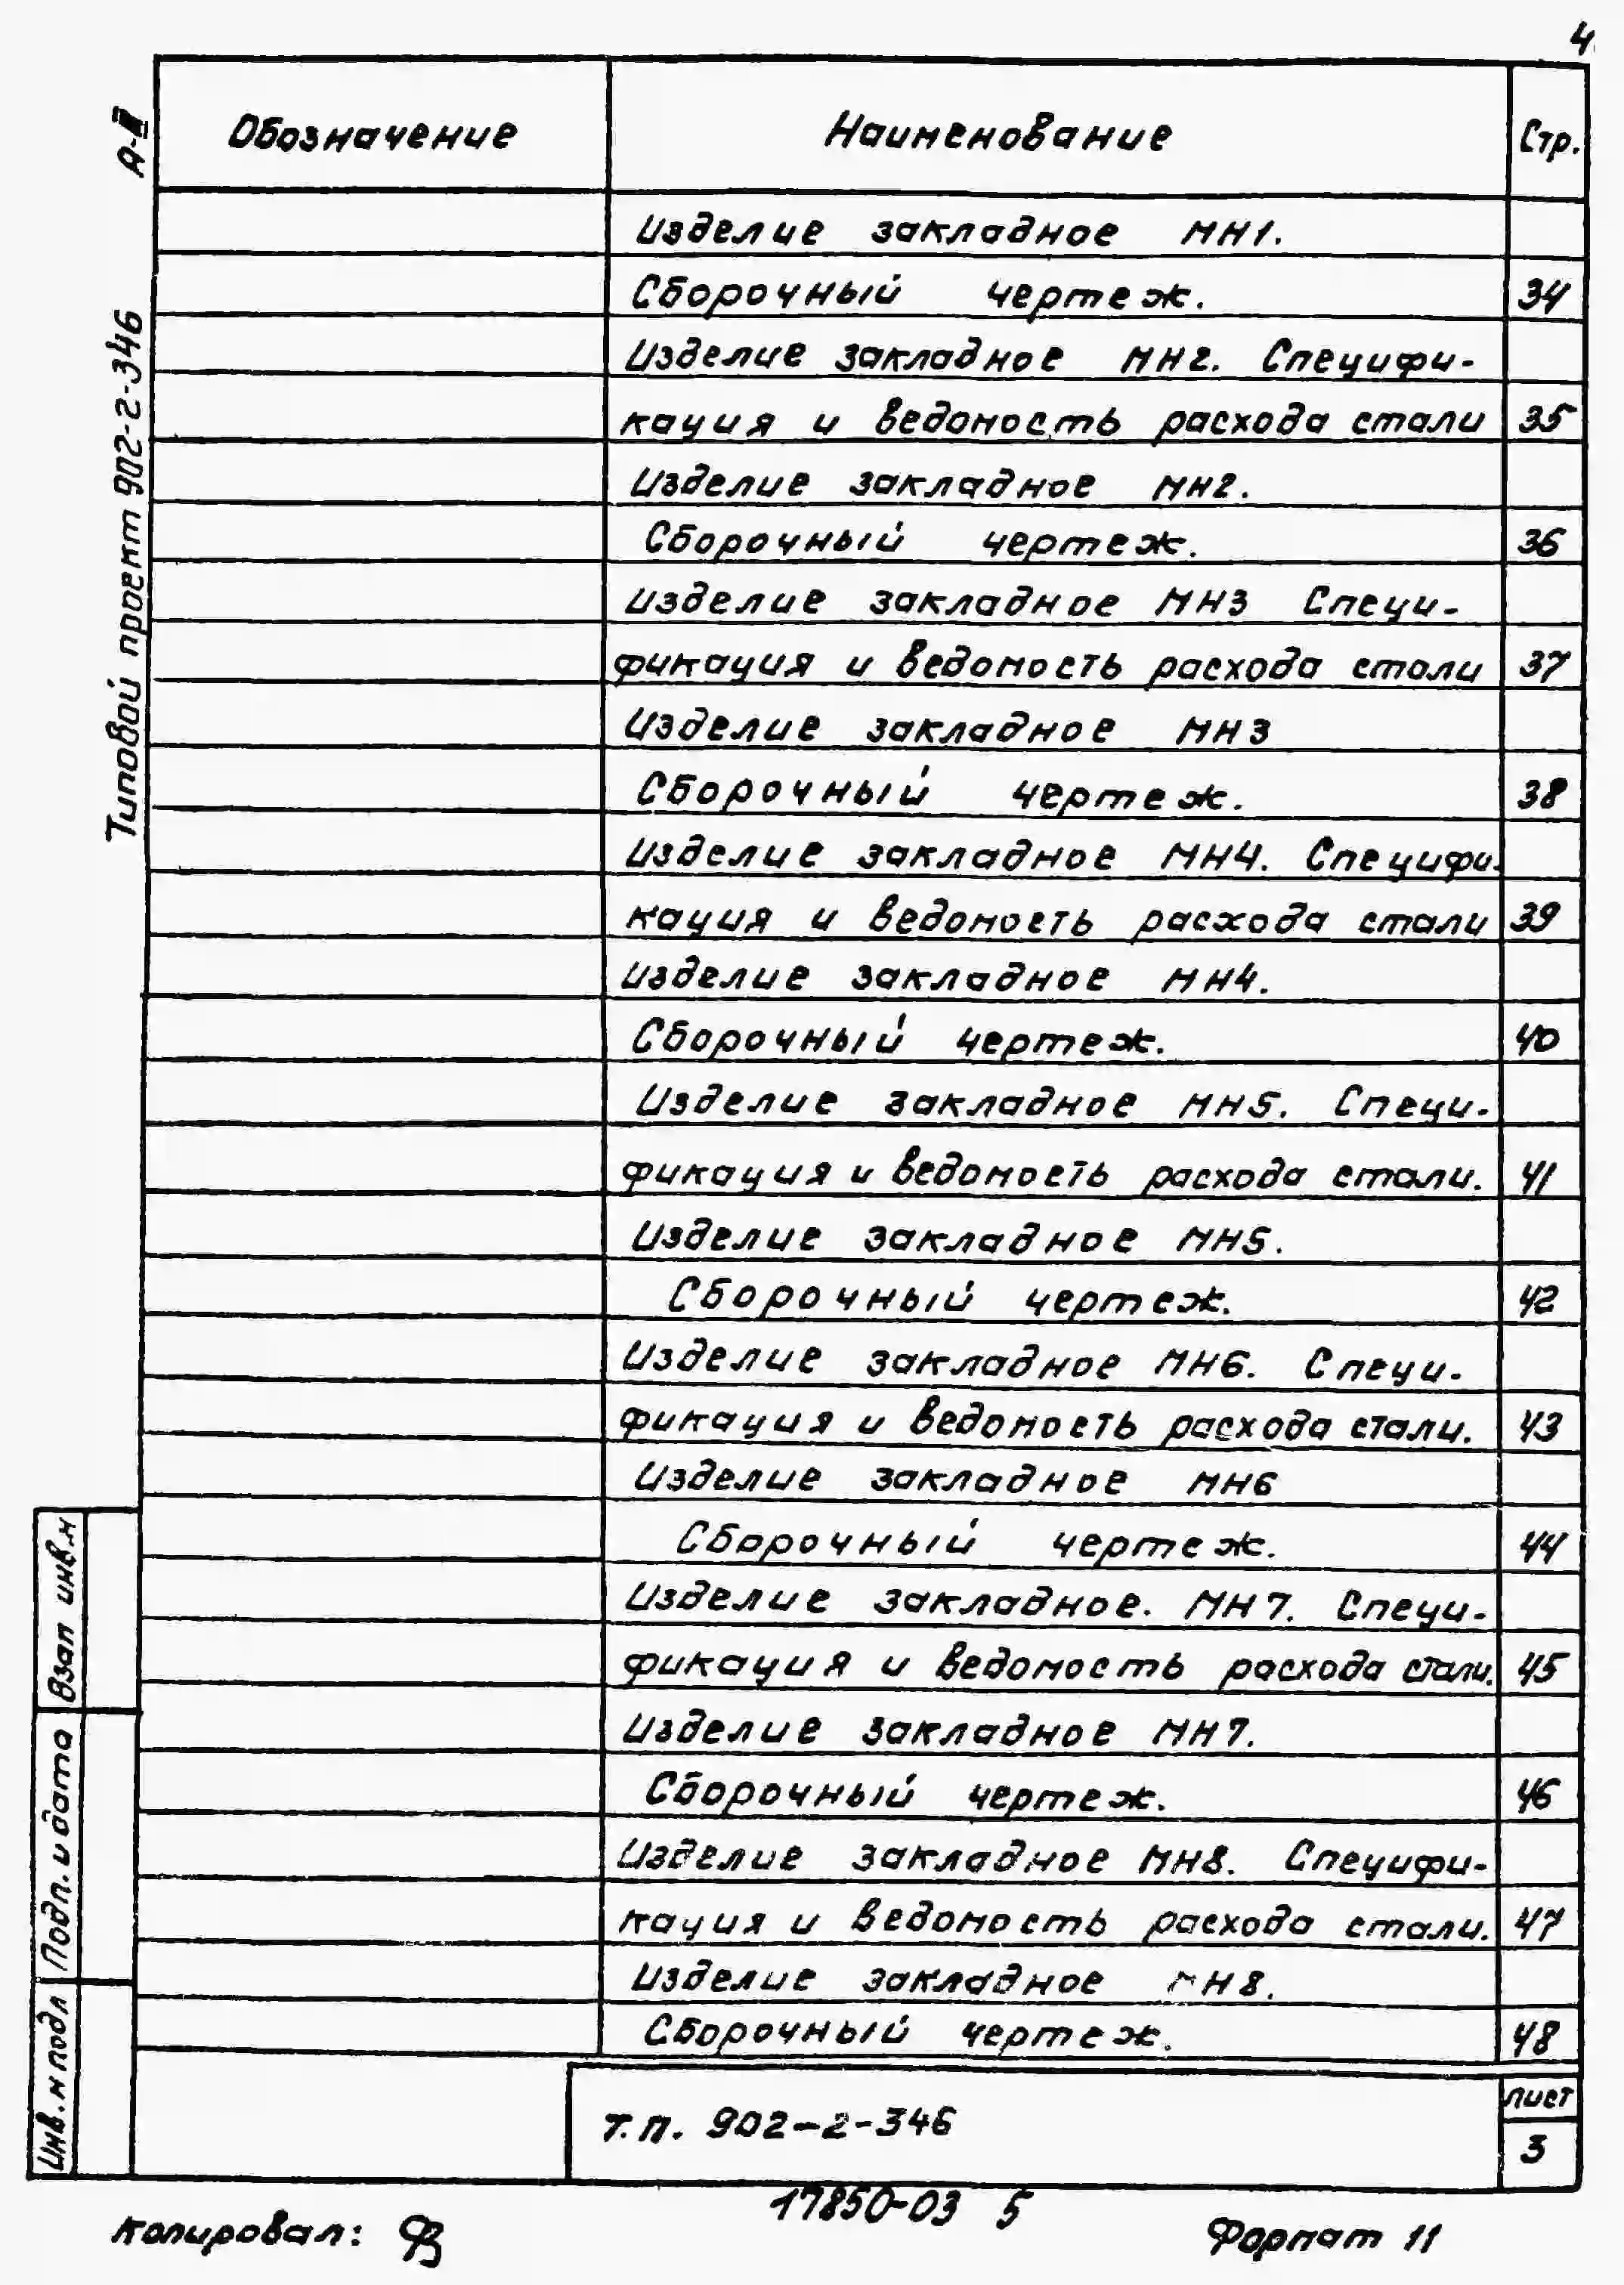 4
Обозначение Наименование Стр.
Изделие закладное МН1.
Сборочный чертеж. 34
Изделие закладное МН2. Специфи-
кация и ведомость расхода стали 35
Изделие закладное МН2.
Сборочный чертеж. 36
Изделие закладное МН3 Специ-
фикация и ведомость расхода стали 37
Изделие закладное МН3
Сборочный чертеж. 38
Изделие закладное МН4. Специфи-
кация и ведомость расхода стали 39
Изделие закладное МН4.
Сборочный чертеж. 40
Изделие закладное МН5. Специ-
фикация и ведомость расхода стали. 41
Изделие закладное МН5.
Сборочный чертеж. 42
Изделие закладное МН6. Специ-
фикация и ведомость расхода стали. 43
Изделие закладное МН6
Сборочный чертеж. 44
Изделие закладное. МН7. Специ-
фикация и ведомость расхода стали. 45
Изделие закладное МН7.
Сборочный чертеж. 46
Изделие закладное МН8. Специфи-
кация и ведомость расхода стали. 47
Изделие закладное МН8.
Сборочный чертеж. 48
Т.П. 902-2-346
лист
3
Типовой проект 902-2-346
Взап инв.н
Подп. и дата
Инв. н подл
17850-03 5
Копировал:
Формат 11